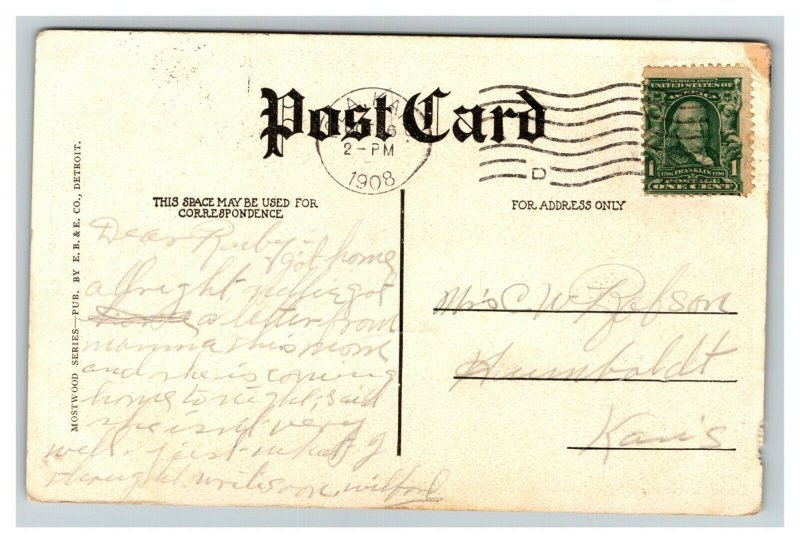 Post Card
2-PM
1908
D
SERIES 1902
UNITED STATES OF AMERICA
1 1
FRANKLIN
POSTAGE
ONE CENT
THIS SPACE MAY BE USED FOR
CORRESPONDENCE
FOR ADDRESS ONLY
MOSTWOOD SERIES—PUB. BY E. B. & E. CO., DETROIT.
Dear Ruby-
got home
allright got
a letter from
mamma this morn
and she is coming
home to night, said
she isn't very
well. just what I
thought. write soon
Mrs C. W.
Humboldt
Kans